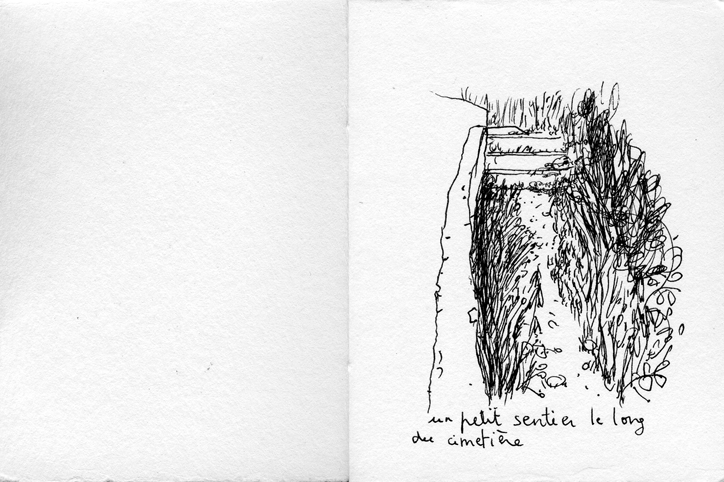 un petit sentier le long
du cimetière